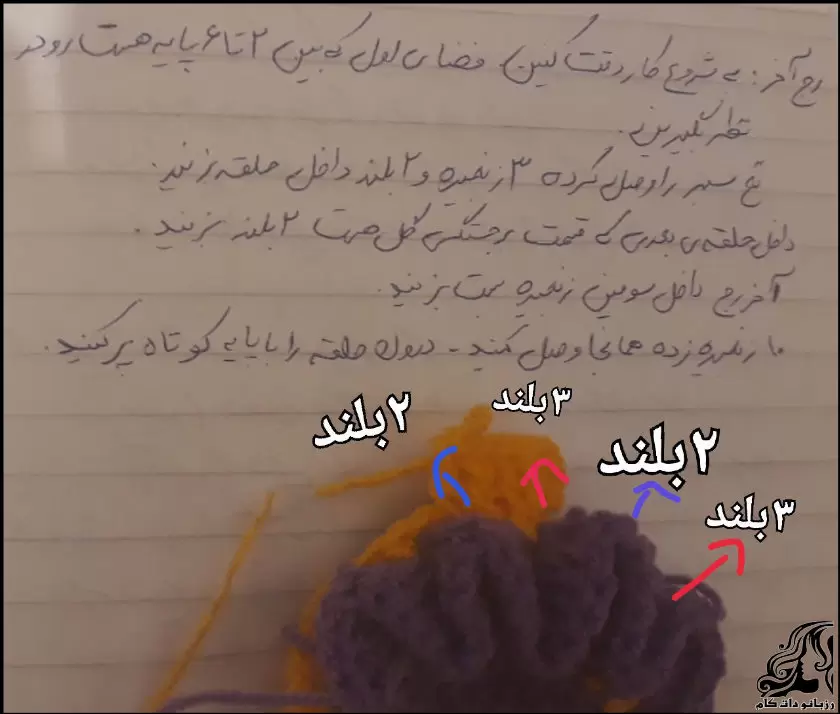 رج آخر: به شروع کار دقت کنین، فضای اول که بین ۲ تا ۶ پایه هست رو در
نظر نگیرین.
نخ سبز را وصل کرده ۳ زنجیره و ۲ بلند داخل حلقه بزنید.
داخل حلقه‌ی بعدی که قسمت برجستگی گل هست ۲ بلند بزنید.
آخر رج داخل سومین زنجیره بست بزنید.
۱۰ زنجیره زده همانجا وصل کنید - درون حلقه را با پایه کوتاه پر کنید.
۳بلند
۲بلند
۲بلند
۳بلند
رزبانو دات کام